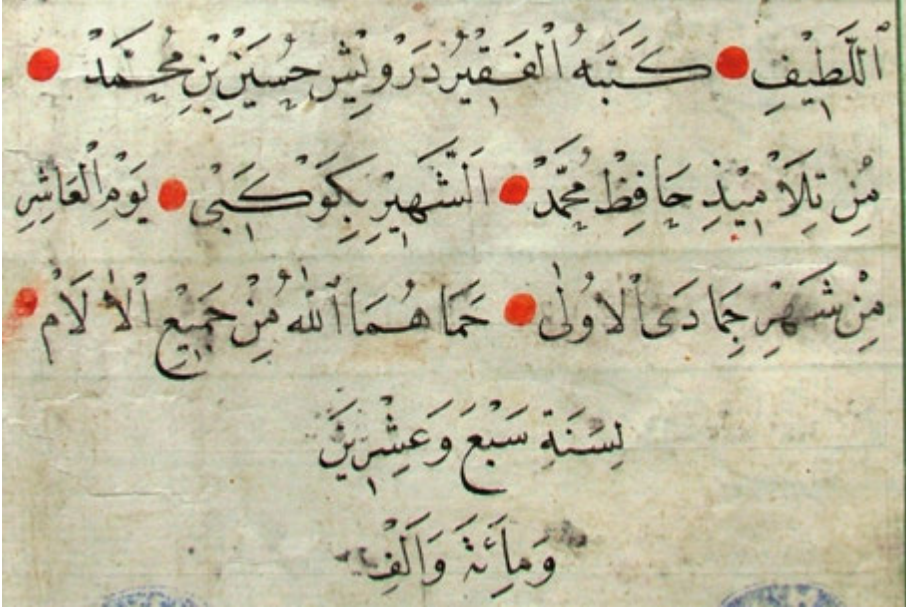 ٱللَّطِيفِ كَتَبَهُ الْفَقِيرُ دَرْوِيشْ حُسَيْنْ بِنِ مُحَمَّدْ
مِنْ تِلَامِيْذِ حَافِظْ مُحَمَّدْ اَلشَّهِيرِ بِكَوْكَبِى يَوْمِ الْعَاشِرِ
مِنْ شَهْرِ جِمَادَى الْاُولٰى حَمَاهُمَا اللّٰهُ مِنْ جَمِيْعِ الْاٰلَامْ
لِسَنَةِ سَبْعَ وَعِشْرِينَ
وَمِائَةَ وَاَلْفِ